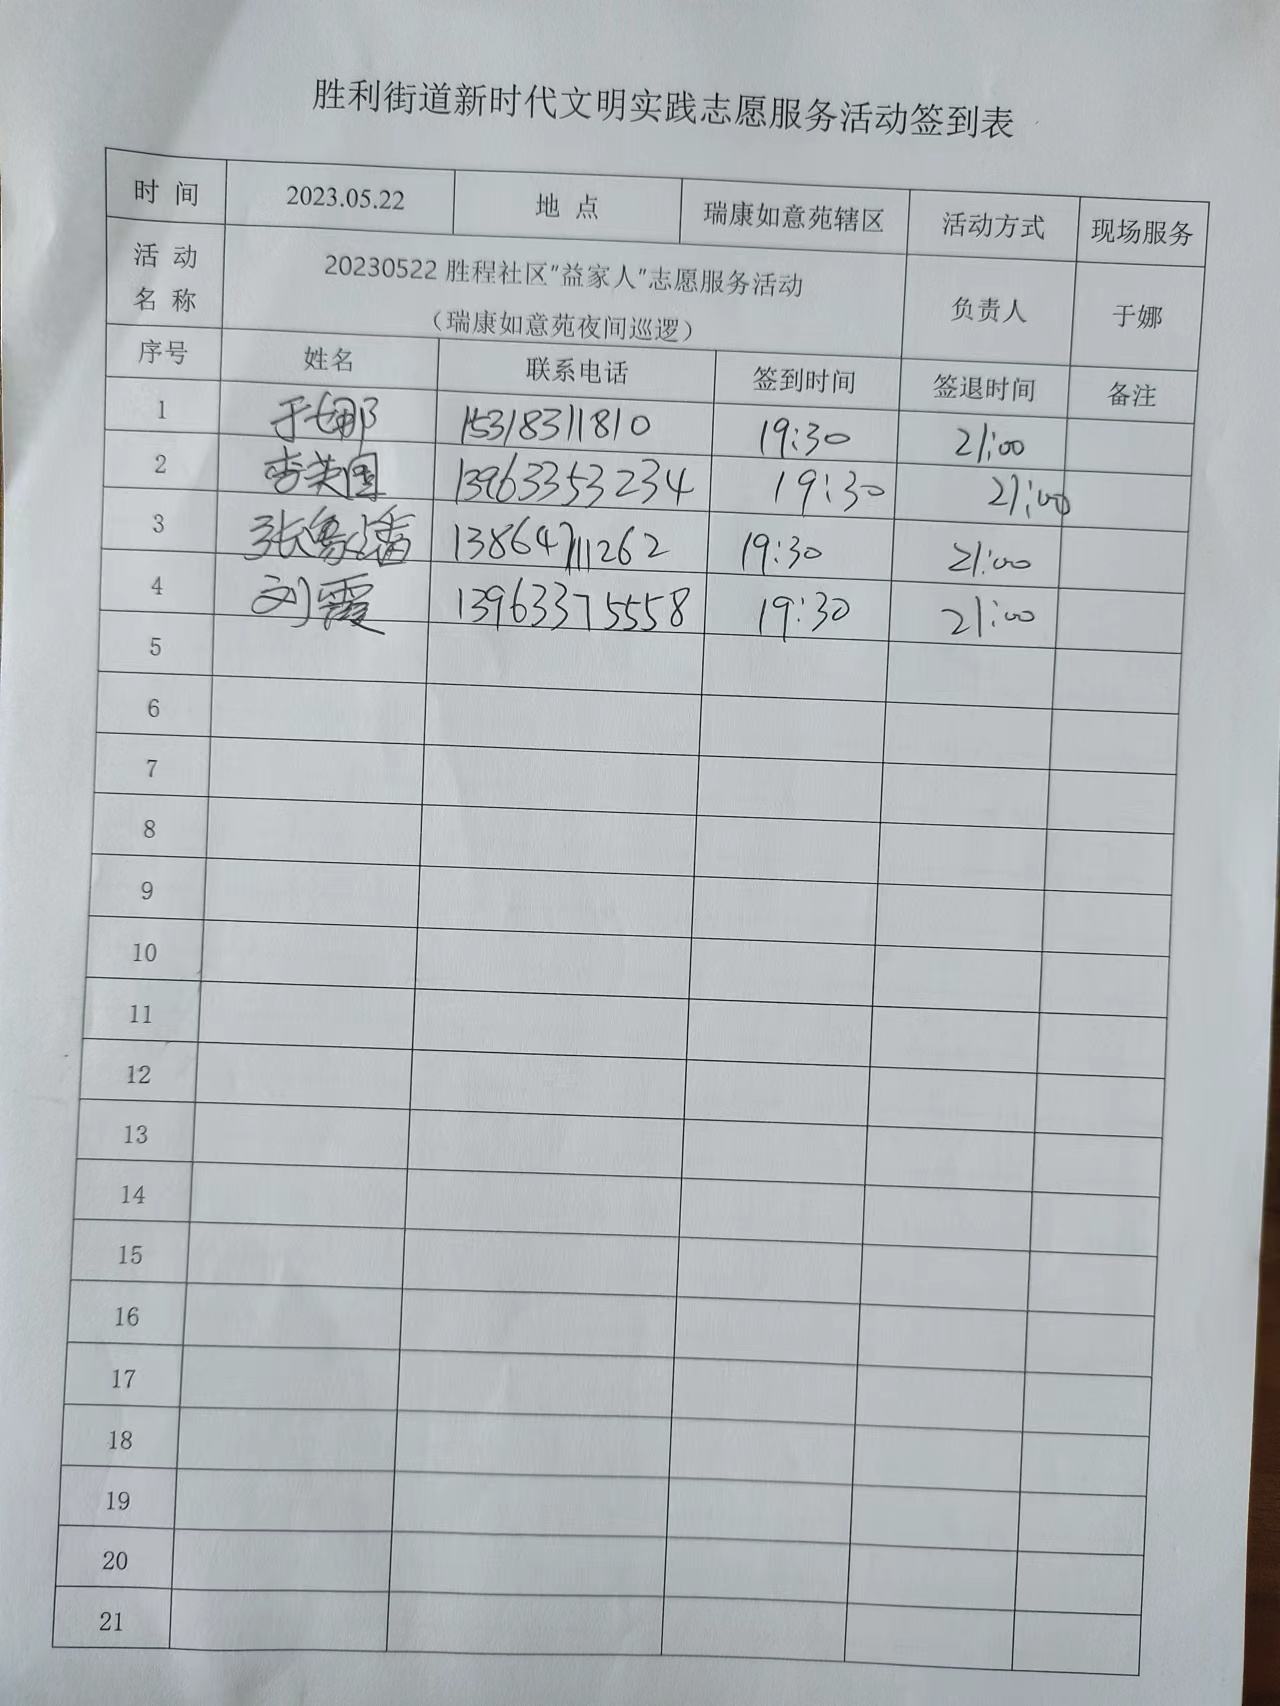 胜利街道新时代文明实践志愿服务活动签到表
时 间 2023.05.22 地 点 瑞康如意苑辖区 活动方式 现场服务
活 动 名 称 20230522 胜程社区"益家人"志愿服务活动 负责人 于娜
（瑞康如意苑夜间巡逻）
序号 姓名 联系电话 签到时间 签退时间 备注
1 于娜 15318311810 19:30 21:00
2 李英国 13963353234 19:30 21:00
3 张 13864711262 19:30 21:00
4 刘霞 13963375558 19:30 21:00
5
6
7
8
9
10
11
12
13
14
15
16
17
18
19
20
21